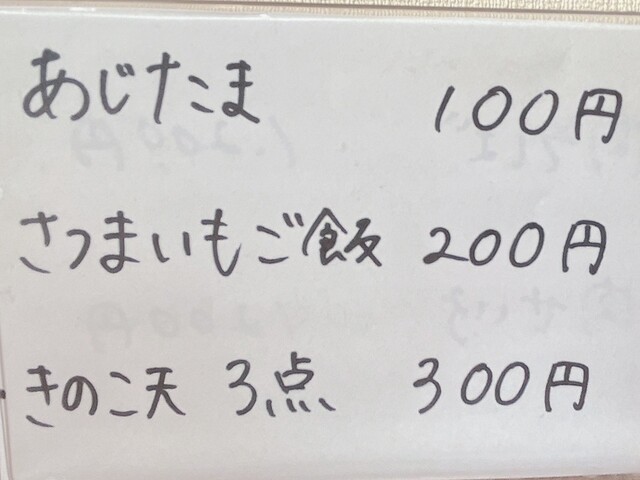 あじたま 100円
さつまいもご飯 200円
きのこ天 3点 300円